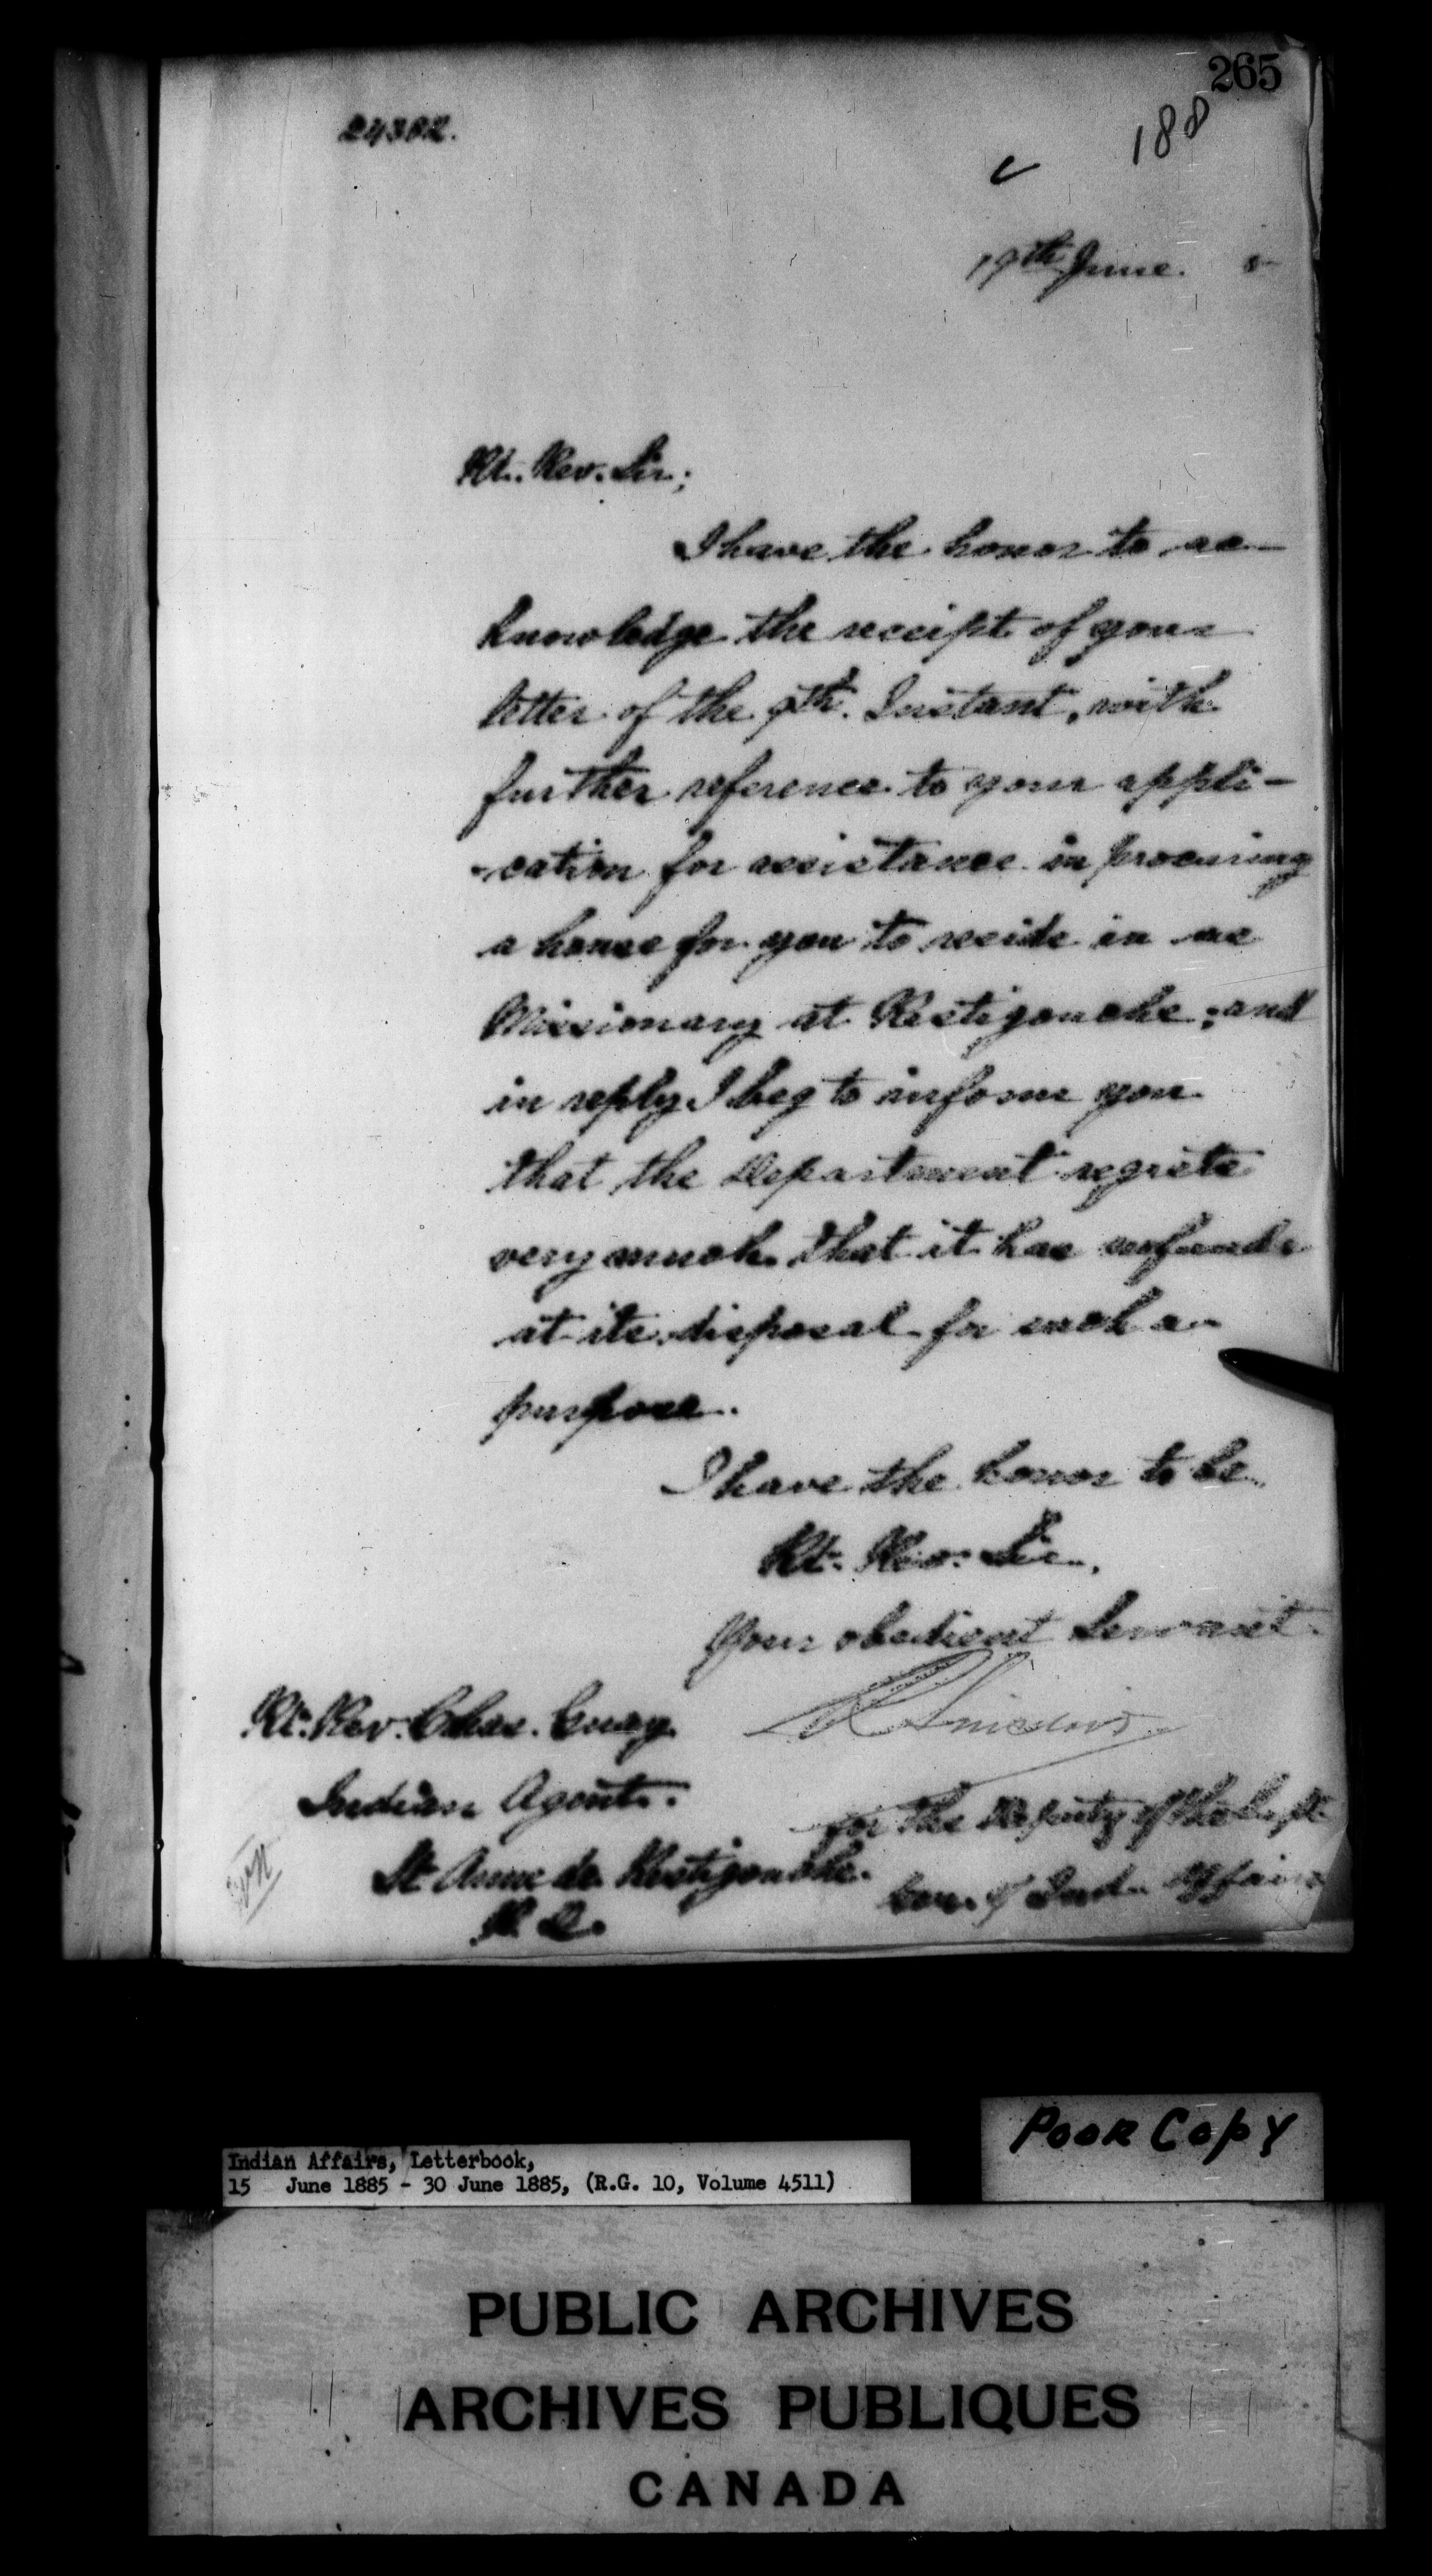 265
24382.
188
19th June. 5
Rt. Rev. Sir;
I have the honor to ac-
knowledge the receipt of your
letter of the 9th. Instant, with
further reference to your appli-
-cation for assistance in procuring
a house for you to reside in as
Missionary at Restigouche; and
in reply I beg to inform you
that the Department regrets
very much that it has no funds
at its disposal for such a
purpose.
I have the honor to be
Rt. Rev. Sir,
Your obedient Servant.
Rt. Rev. Chas. Guay
Indian Agent.
for the Deputy of the Supt.
St Anne de Restigouche.
Gen. of Ind. Affairs
P. Q.
Poor Copy
Indian Affairs, Letterbook,
15 June 1885 - 30 June 1885, (R.G. 10, Volume 4511)
PUBLIC ARCHIVES
ARCHIVES PUBLIQUES
CANADA